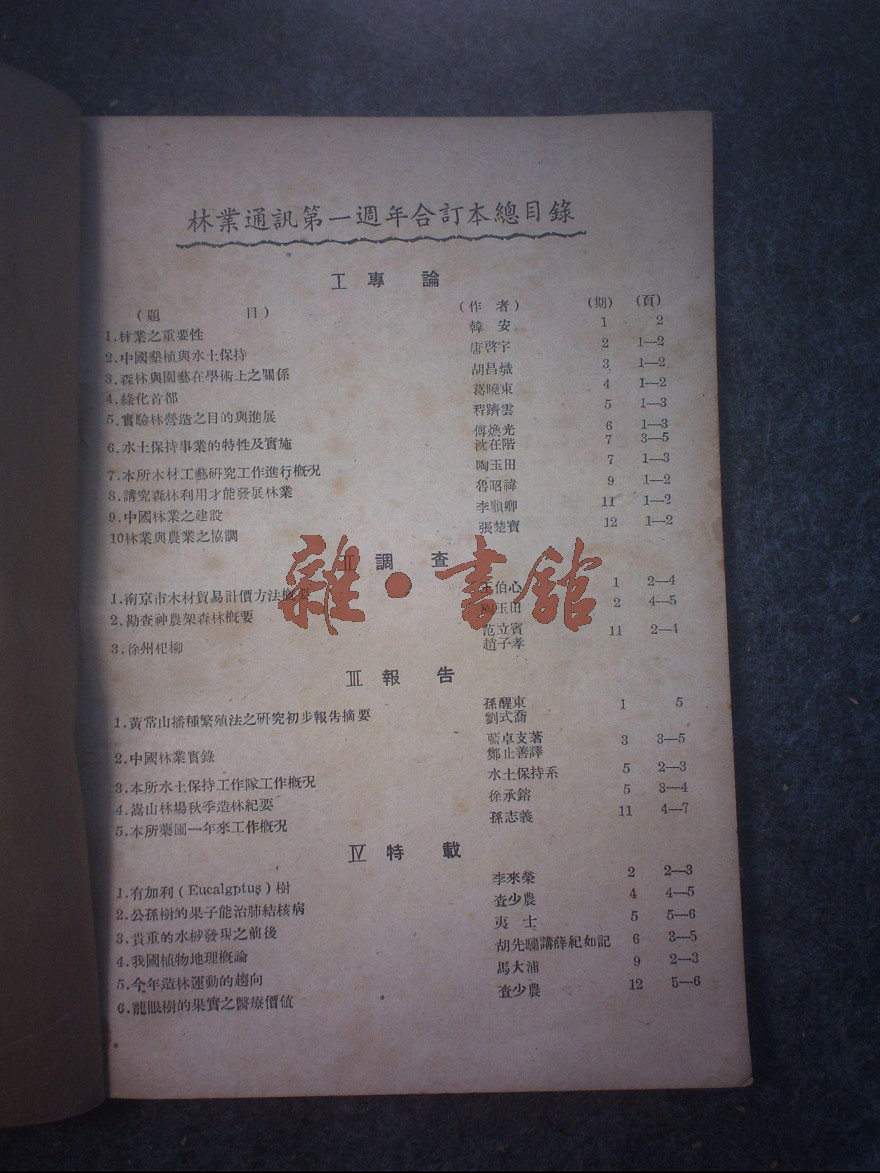 林業通訊第一週年合訂本總目錄
Ⅰ 專 論
(題 目) (作 者) (期) (頁)
1.林業之重要性 韓 安 1 2
2.中國墾植與水土保持 唐啓宇 2 1—2
3.森林與園藝在學術上之關係 胡昌熾 3 1—2
4.綠化首都 葛曉東 4 1—2
5.實驗林營造之目的與進展 程躋雲 5 1—3
6.水土保持事業的特性及實施 傅煥光 6 1—3
沈在階 7 3—5
7.本所木材工藝研究工作進行概況 陶玉田 7 1—3
8.講究森林利用才能發展林業 魯昭禕 9 1—2
9.中國林業之建設 李順卿 11 1—2
10林業與農業之協調 張楚寶 12 1—2
Ⅱ 調 查
1.南京市木材貿易計價方法概要 王伯心 1 2—4
2.勘查神農架森林概要 陶玉田 2 4—5
3.徐州杞柳 范立賓 11 2—4
趙子孝
Ⅲ 報 告
1.黃常山播種繁殖法之研究初步報告摘要 孫醒東 1 5
劉式喬
2.中國林業實錄 藍卓支著 3 3—5
鄭止善譯
3.本所水土保持工作隊工作概況 水土保持系 5 2—3
4.嵩山林場秋季造林紀要 徐承鎔 5 3—4
5.本所藥圃一年來工作概況 孫志義 11 4—7
Ⅳ 特 載
1.有加利(Eucalgptus)樹 李來榮 2 2—3
2.公孫樹的果子能治肺結核病 查少農 4 4—5
3.貴重的水杉發現之前後 夷 士 5 5—6
4.我國植物地理概論 胡先驌講薛紀如記 6 3—5
5.今年造林運動的趨向 馬大浦 9 2—3
6.龍眼樹的果實之醫療價值 查少農 12 5—6
雜·書館